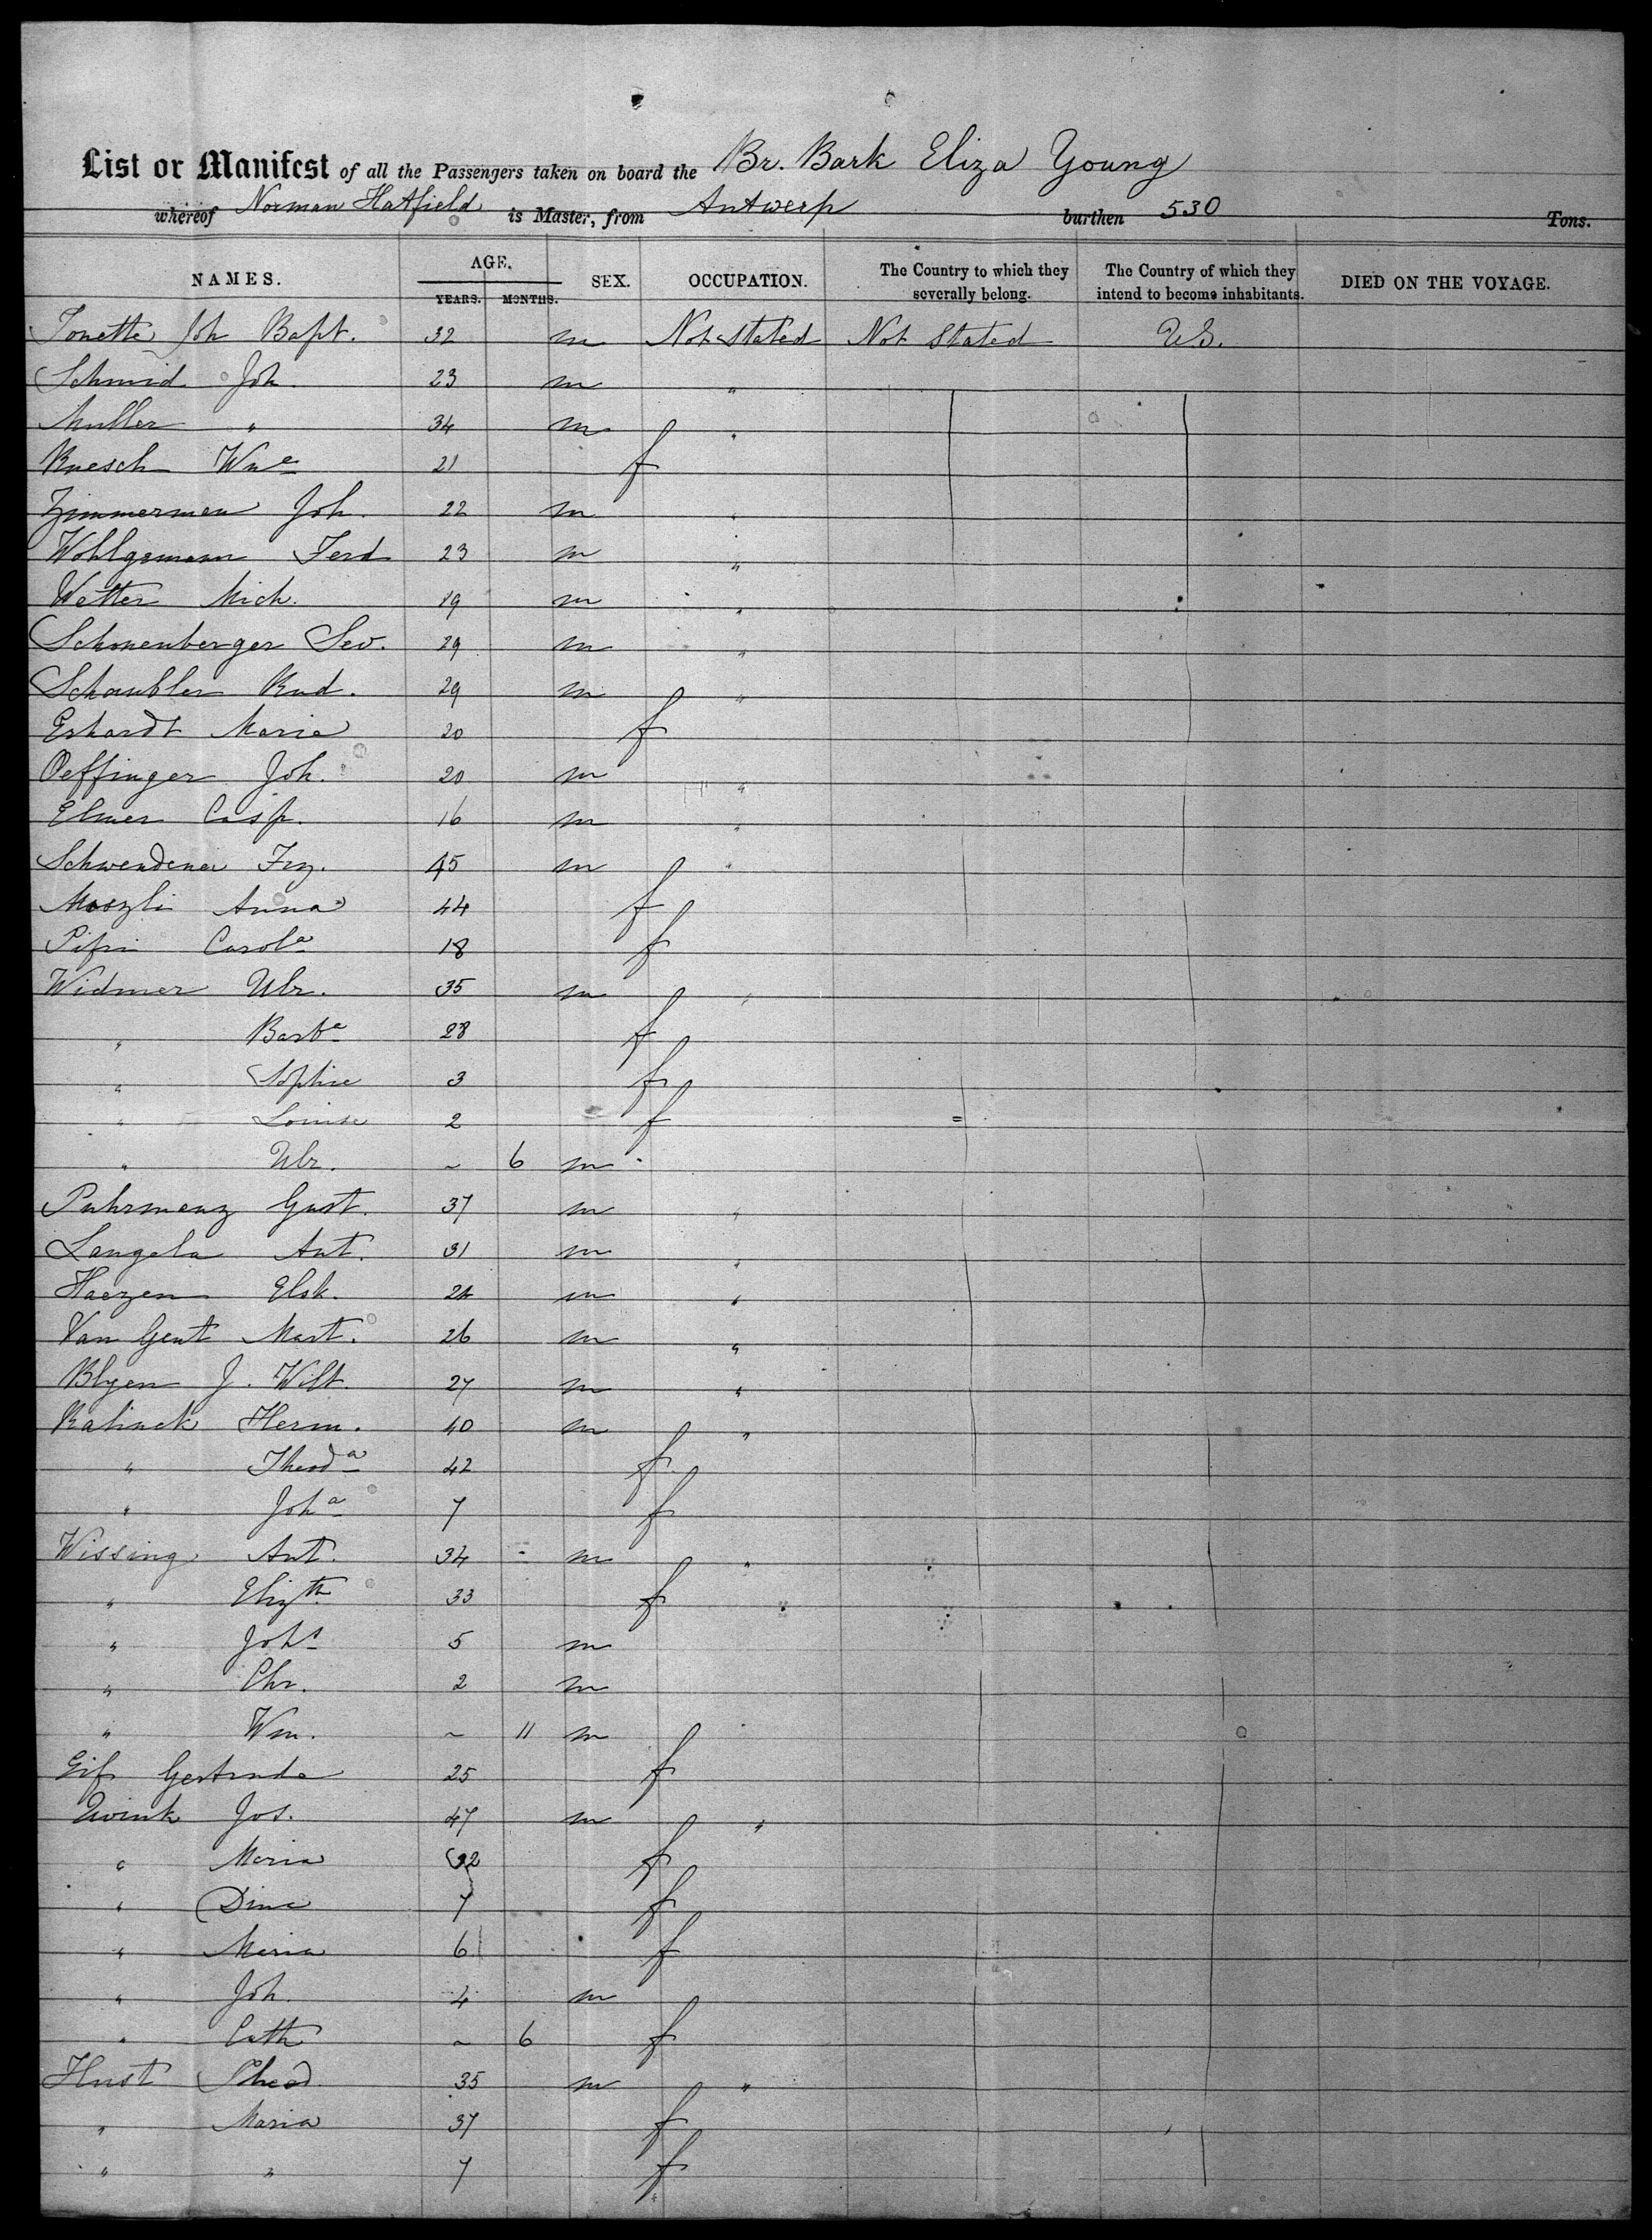 List or Manifest of all the Passengers taken on board the Br. Bark Eliza Young
whereof Norman Hatfield is Master, from Antwerp burthen 530 Tons.
NAMES. AGE. YEARS. MONTHS. SEX. OCCUPATION. The Country to which they severally belong. The Country of which they intend to become inhabitants. DIED ON THE VOYAGE.
Tonette Joh Bapt. 32 m Not Stated Not Stated US.
Schmid Joh. 23 m "
Muller " 34 m "
Ruesch Wne 21 f
Zimmerman Joh. 22 m "
Wohlgemann Ferd 23 m "
Wetter Mich. 19 m "
Schonenberger Sev. 29 m "
Schaubler Rud. 29 m "
Erhardt Maria 20 f
Oeffinger Joh. 20 m "
Elmer Casp. 16 m "
Schwendener Frz. 45 m "
Moezli Anna 44 f
Carola 18 f
Widmer Ulr. 35 m "
" Barba 28 f
" Sophie 3 f
" Louise 2 f
" Ulr. ~ 6 m
Puhrmanz Gust. 37 m "
Langela Ant. 31 m "
Haezen Elsk. 24 m "
Van Gent Mart. 26 m "
Blyen J. Wilt. 27 m "
Ratinck Herm. 40 m "
" Theoda 42 f
" Joha 7 f
Wissing Ant. 34 m "
" Elizth 33 f
" Johs 5 m
" Chr. 2 m
" Wm. ~ 11 m
Gertruda 25 f
Zwink Jos. 47 m "
" Maria 32 f
" Dina 7 f
" Maria 6 f
" Joh. 4 m
" Cath ~ 6 f
Hust Theod. 35 m "
" Maria 37 f
" " 7 f